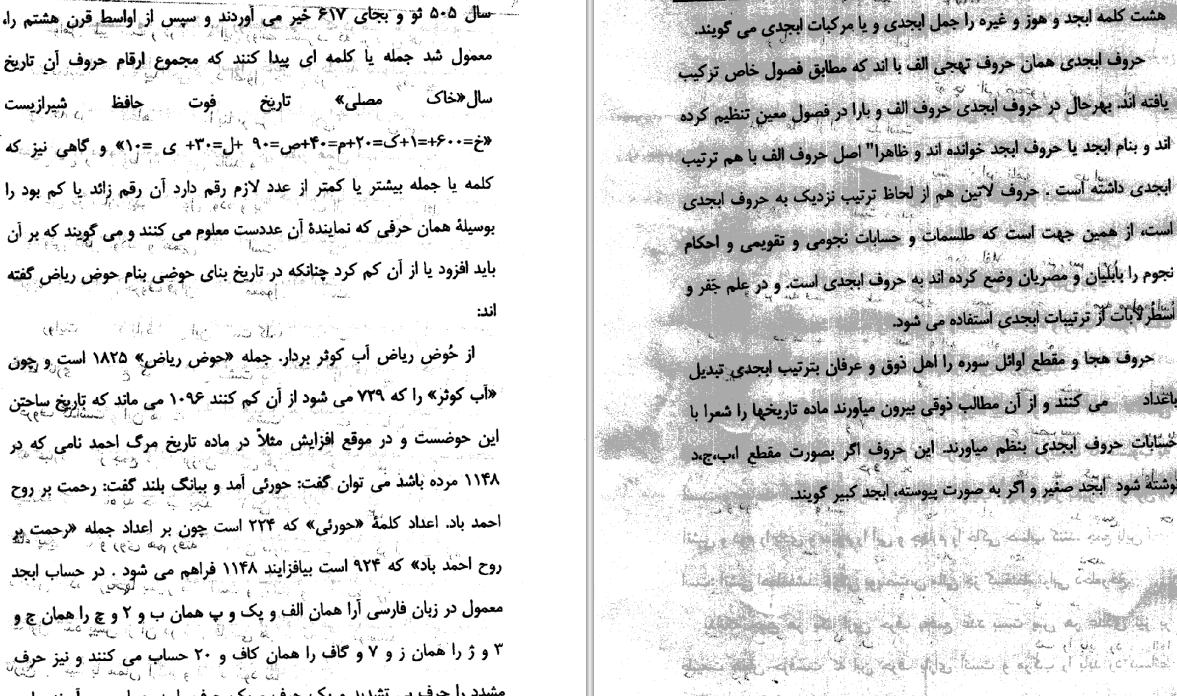 هشت کلمه ابجد و هوز و غیره را جمل ابجدی و یا مرکبات ابجدی می گویند.
حروف ابجدی همان حروف تهجی الف با اند که مطابق فصول خاص ترکیب
یافته اند. بهرحال در حروف ابجدی حروف الف و بارا در فصول معین تنظیم کرده
اند و بنام ابجد یا حروف ابجد خوانده اند و ظاهرا" اصل حروف الف با هم ترتیب
ابجدی داشته است . حروف لاتین هم از لحاظ ترتیب نزدیک به حروف ابجدی
است، از همین جهت است که طلسمات و حسابات نجومی و تقویمی و احکام
نجوم را بابلیان و مصریان وضع کرده اند به حروف ابجدی است. و در علم جَفر و
اُسطُرلابات از ترتیبات ابجدی استفاده می شود.
حروف هجا و مقطع اوائل سوره را اهل ذوق و عرفان بترتیب ابجدی تبدیل
باعداد می کنند و از آن مطالب ذوقی بیرون میآورند ماده تاریخها را شعرا با
حسابات حروف ابجدی بنظم میاورند. این حروف اگر بصورت مقطع ا،ب،ج،د
نوشته شود ابجد صغیر و اگر به صورت پیوسته، ابجد کبیر گویند.
سال ۵۰۵ ثو و بجای ۶۱۷ خیر می آوردند و سپس از اواسط قرن هشتم را،
معمول شد جمله یا کلمه ای پیدا کنند که مجموع ارقام حروف آن تاریخ
سال«خاک مصلی» تاریخ فوت حافظ شیرازیست
«خ=۶۰۰+=۱+ک=۲۰+م=۴۰+ص=۹۰ +ل=۳۰+ ی =۱۰» و گاهی نیز که
کلمه یا جمله بیشتر یا کمتر از عدد لازم رقم دارد آن رقم زائد یا کم بود را
بوسیلهٔ همان حرفی که نمایندهٔ آن عددست معلوم می کنند و می گویند که بر آن
باید افزود یا از آن کم کرد چنانکه در تاریخ بنای حوضی بنام حوض ریاض گفته
اند:
از حُوض ریاض آب کوثر بردار. جمله «حوض ریاض» ۱۸۲۵ است و چون
«آب کوثر» را که ۷۲۹ می شود از آن کم کنند ۱۰۹۶ می ماند که تاریخ ساختن
این حوضست و در موقع افزایش مثلاً در ماده تاریخ مرگ احمد نامی که در
۱۱۴۸ مرده باشد می توان گفت: حورئی آمد و ببانگ بلند گفت: رحمت بر روح
احمد باد. اعداد کلمهٔ «حورئی» که ۲۲۴ است چون بر اعداد جمله «رحمت بر
روح احمد باد» که ۹۲۴ است بیافزایند ۱۱۴۸ فراهم می شود . در حساب ابجد
معمول در زبان فارسی آرا همان الف و یک و پ همان ب و ۲ و چ را همان ج و
۳ و ژ را همان ز و ۷ و گاف را همان کاف و ۲۰ حساب می کنند و نیز حرف
مشدد را حرف بی تشدید و یک حرف